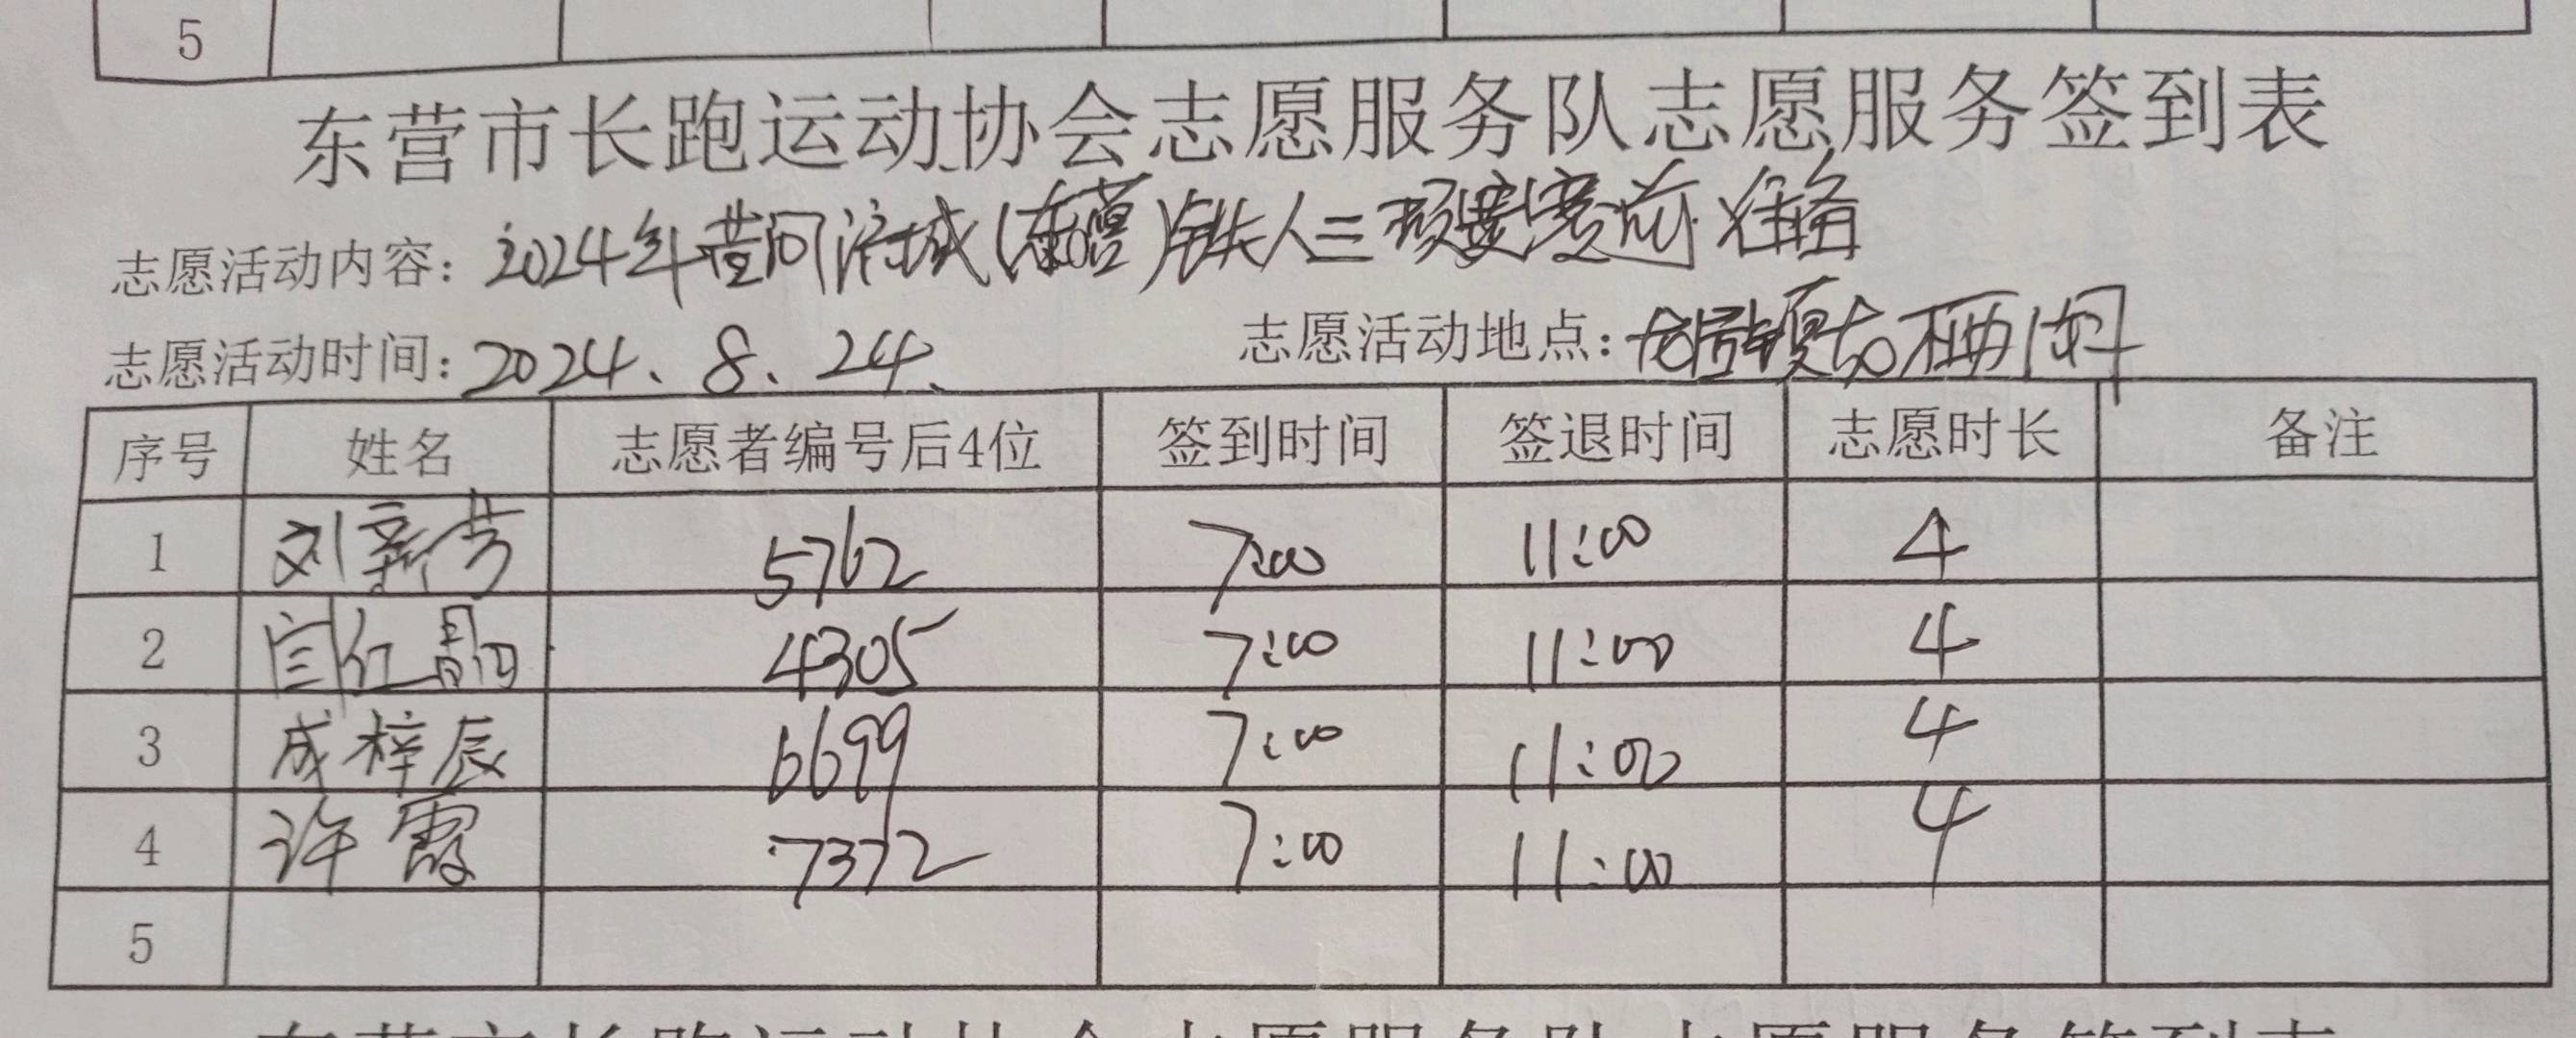 5
东营市长跑运动协会志愿服务队志愿服务签到表
志愿活动内容：2024年黄河 城（东营）铁人三项赛赛前准备
志愿活动时间：2024、8、24、 志愿活动地点：
序号 姓名 志愿者编号后4位 签到时间 签退时间 志愿时长 备注
1 刘新芳 5762 7:00 11:00 4
2 红 4305 7:00 11:00 4
3 成梓辰 6699 7:00 11:00 4
4 许霞 7372 7:00 11:00 4
5
东营市长跑运动协会志愿服务队志愿服务签到表